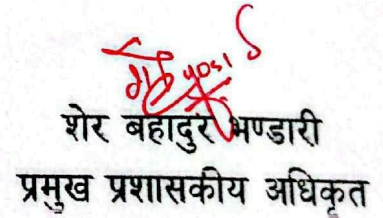 शेर बहादुर भण्डारी
प्रमुख प्रशासकीय अधिकृत